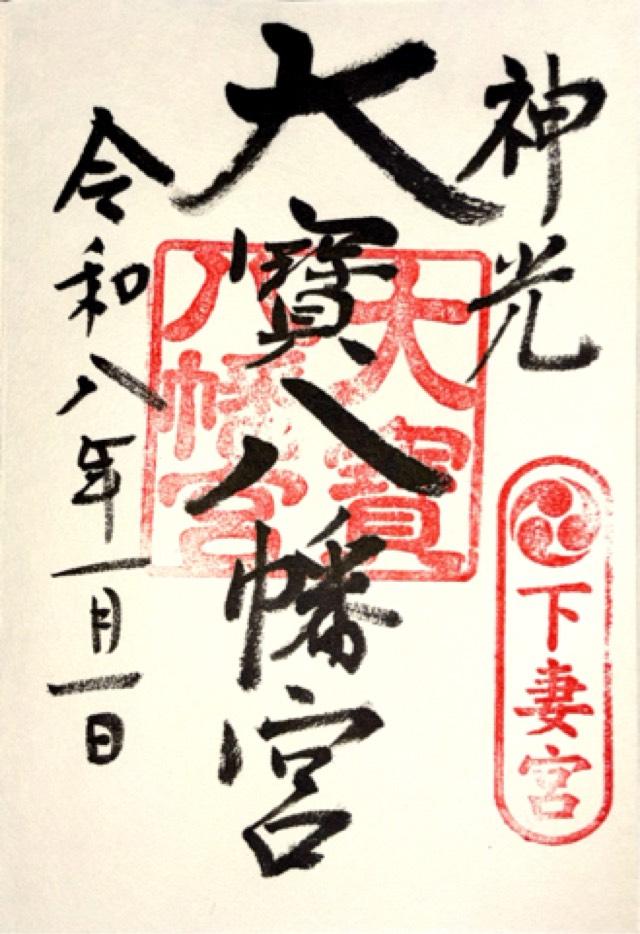 神光
下妻宮
大寶八幡宮
大寶
八幡宮
令和八年一月一日